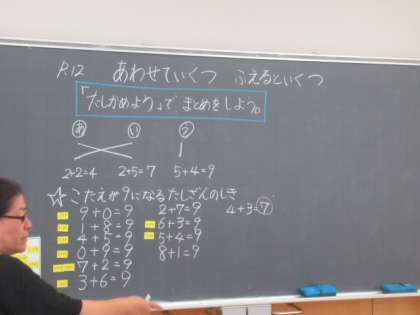 P.12 あわせていくつ ふえるといくつ
「たしかめよう」で、まとめをしよう。
あ い う
2+2=4 2+5=7 5+4=9
☆こたえが9になるたしざんのしき
9+0=9 2+7=9 4+3=7
1+8=9 6+3=9
4+5=9 5+4=9
0+9=9 8+1=9
7+2=9
3+6=9